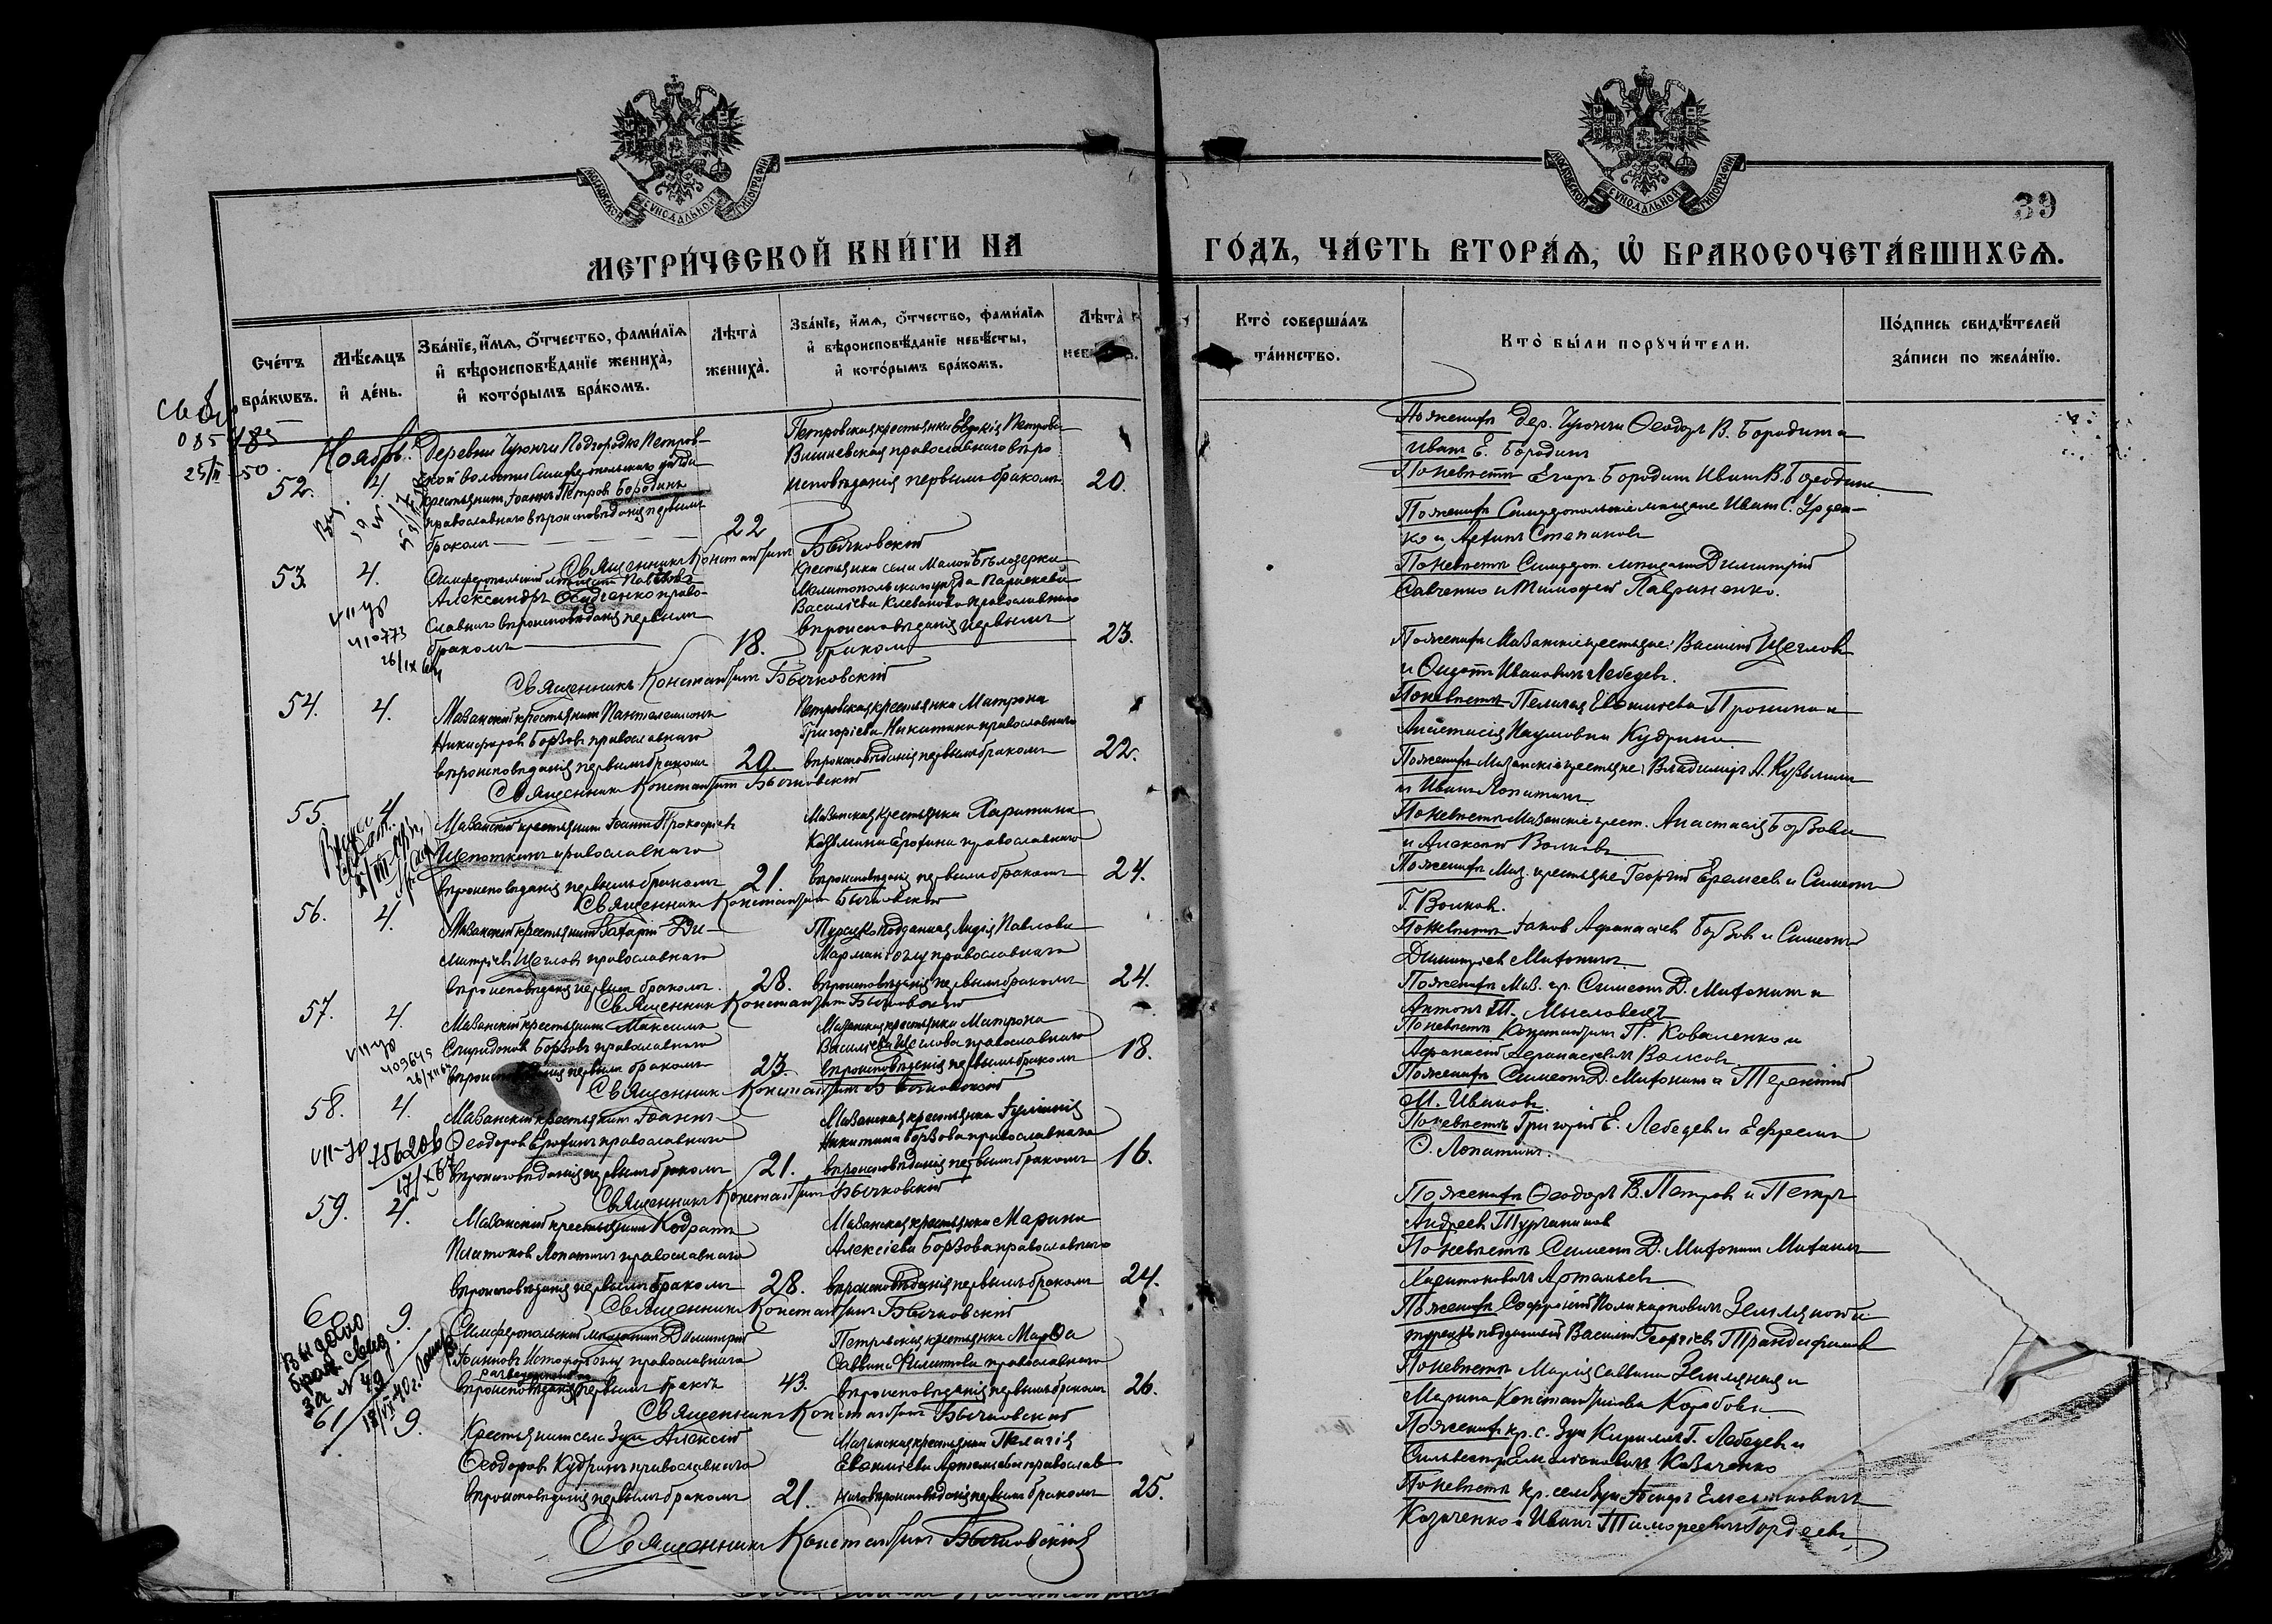 МОСКОВСКОЙ СѴНОДАЛЬНОЙ ТИПОГРАФІИ
МОСКОВСКОЙ СѴНОДАЛЬНОЙ ТИПОГРАФІИ
39
МЕТРИ́ЧЕСКОЙ КНИ́ГИ НА ГО́ДЪ, ЧА́СТЬ ВТОРА́Ѧ, Ѡ҆ БРАКОСОЧЕТА́ВШИХСѦ.
Сче́тъ бра́кѡвъ.
Мѣ́сѧцъ и҆ де́нь.
Зва́нїе, и҆́мѧ, ѻ҆́тчество, фами́лїѧ и҆ вѣроисповѣ́данїе жениха̀, и҆ кото́рымъ бра́комъ.
Лѣ́та̀ жениха̀.
Зва́нїе, и҆́мѧ, ѻ҆́тчество, фами́лїѧ и҆ вѣроисповѣ́данїе невѣ́сты, и҆ кото́рымъ бра́комъ.
Лѣ́та̀
Кто̀ соверша́лъ та́инство.
Кто̀ бы́ли порꙋчи́тели.
По́дпись свидѣ́телей за́писи по жела́нїю.
Ноябрь.
52.
4.
Деревни Подгородне Петров-
ской волости Симферопольскаго уѣзда
крестьянинъ Іоаннъ Петровъ Бородинъ
православнаго вѣроисповѣданія первымъ
бракомъ
22
Петровская крестьянка Евдокія Петрова
Вишневская православнаго вѣро
исповѣданія первымъ бракомъ
20.
Священникъ Константинъ Бычковскій
По женихѣ дер. Ѳеодоръ В. Бородинъ и
Иванъ Е. Бородинъ
По невѣстѣ Егоръ Бородинъ Иванъ В. Бородинъ
53.
4.
Симферопольскій мѣщанинъ Павловъ
Александръ Осадченко право-
славнаго вѣроисповѣданія первымъ
бракомъ
18.
Крестьянка села Малой Бѣлозерки
Мелитопольскаго уѣзда Параскева
Василіева православнаго
вѣроисповѣданія первымъ
бракомъ
23.
Священникъ Константинъ Бычковскій
По женихѣ Симферопольскіе мѣщане Иванъ С.
ко и Степановъ
По невѣстѣ Симфероп. мѣщане Димитрій
Савченко и Тимофей Лавриненко.
54.
4.
Мазанскій крестьянинъ Пантелеимонъ
Никифоровъ Борзовъ православнаго
вѣроисповѣданія первымъ бракомъ
20.
Петровская крестьянка Матрона
Григоріева Никитина православнаго
вѣроисповѣданія первымъ бракомъ
22.
Священникъ Константинъ Бычковскій
По женихѣ Мазанскіе крестьяне: Василій Щегловъ
и Ивановичъ Лебедевъ.
По невѣстѣ Пелагія Евѳиміева Пронина и
Анастасія Наумовна Кудрина
55.
4.
Мазанскій крестьянинъ Іоаннъ Прокофіевъ
Щепоткинъ православнаго
вѣроисповѣданія первымъ бракомъ
21.
Мазанская крестьянка Харитина
Козьмина Ерохина православнаго
вѣроисповѣданія первымъ бракомъ
24.
Священникъ Константинъ Бычковскій
По женихѣ Мазанскіе крестьяне: Владиміръ А. Кузьминъ
и Иванъ Лопатинъ
По невѣстѣ Мазанскіе крест. Анастасія Борзова
и Алексѣй Волковъ
56.
4.
Мазанскій крестьянинъ Захарій Ди-
митріевъ Щегловъ православнаго
вѣроисповѣданія первымъ бракомъ.
28.
Турецко подданная Лидія Павлова
православнаго
вѣроисповѣданія первымъ бракомъ
24.
Священникъ Константинъ Бычковскій
По женихѣ Маз. крестьяне Георгій Еремеевъ и Симеонъ
Г. Волковъ.
По невѣстѣ Іаковъ Аѳанасіевъ Борзовъ и Симеонъ
Димитріевъ Митонинъ
57.
4.
Мазанскій крестьянинъ Максимъ
Спиридоновъ Борзовъ православнаго
вѣроисповѣданія первымъ бракомъ
23.
Мазанская крестьянка Матрона
Василіева Щеглова православнаго
вѣроисповѣданія первымъ бракомъ
18.
Священникъ Константинъ Бычковскій
По женихѣ Маз. кр. Симеонъ Д. Митонинъ и
Антонъ Т. Мысловецъ
По невѣстѣ Константинъ П. Коваленко и
Аѳанасій Аѳанасіевичъ Волковъ
58.
4.
Мазанскій крестьянинъ Іоаннъ
Ѳеодоровъ Ерохинъ православнаго
вѣроисповѣданія первымъ бракомъ
21.
Мазанская крестьянка Іуліанія
Никитина Борзова православнаго
вѣроисповѣданія первымъ бракомъ
16.
Священникъ Константинъ Бычковскій
По женихѣ Симеонъ Д. Митонинъ и Терентій
М. Ивановъ.
По невѣстѣ Григорій Е. Лебедевъ и Ефремъ
О. Лопатинъ.
59.
4.
Мазанскій крестьянинъ Кодратъ
Платоновъ Лопатинъ православнаго
вѣроисповѣданія первымъ бракомъ
28.
Мазанская крестьянка Марина
Алексіева Борзова православнаго
вѣроисповѣданія первымъ бракомъ
24.
Священникъ Константинъ Бычковскій
По женихѣ Ѳеодоръ В. Петровъ и Петръ
Андреевъ Турчаниновъ
По невѣстѣ Симеонъ Д. Митонинъ Михаилъ
Харитоновичъ Артемьевъ
60
9.
Выдано
брач. свид.
за № 49
Симферопольскій мѣщанинъ Димитрій
Іоанновъ православнаго
вѣроисповѣданія первымъ бракъ
43.
Петровская крестьянка Марѳа
Саввина Филитова православнаго
вѣроисповѣданія первымъ бракомъ
26.
Священникъ Константинъ Бычковскій
По женихѣ Софроній Поликарповичъ Земляной и
турецко подданный Василій Георгіевъ Трандафиловъ
По невѣстѣ Марія Саввина Земляная и
Марина Константинова Коробова
61
9.
Крестьянинъ села Зуи Алексій
Ѳеодоровъ Кудринъ православнаго
вѣроисповѣданія первымъ бракомъ
21.
Мазанская крестьянка Пелагія
Евѳиміева Артемьева православ
наго вѣроисповѣданія первымъ бракомъ
25.
Священникъ Константинъ Бычковскій
По женихѣ кр. с. Зуи Кириллъ Г. Лебедевъ и
Сильвестръ Емельяновичъ Казаченко
По невѣстѣ кр. села Зуи Емельяновичъ
Казаченко и Иванъ Тимофеевичъ Гордеевъ